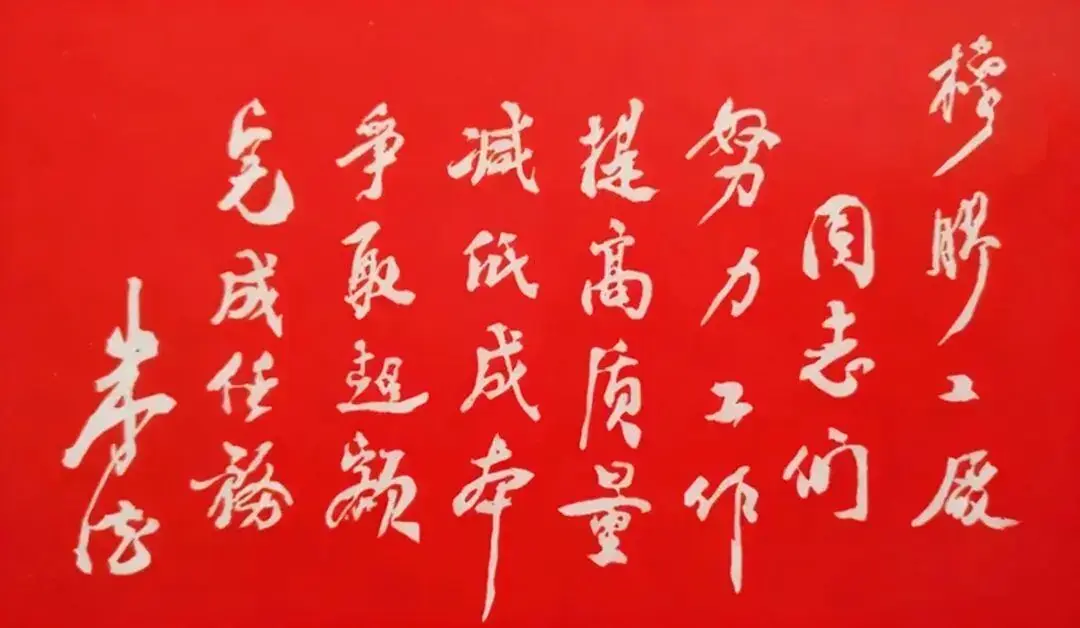 橡膠工厰
同志们
努力工作
提高质量
减低成本
争取超额
完成任務
朱德